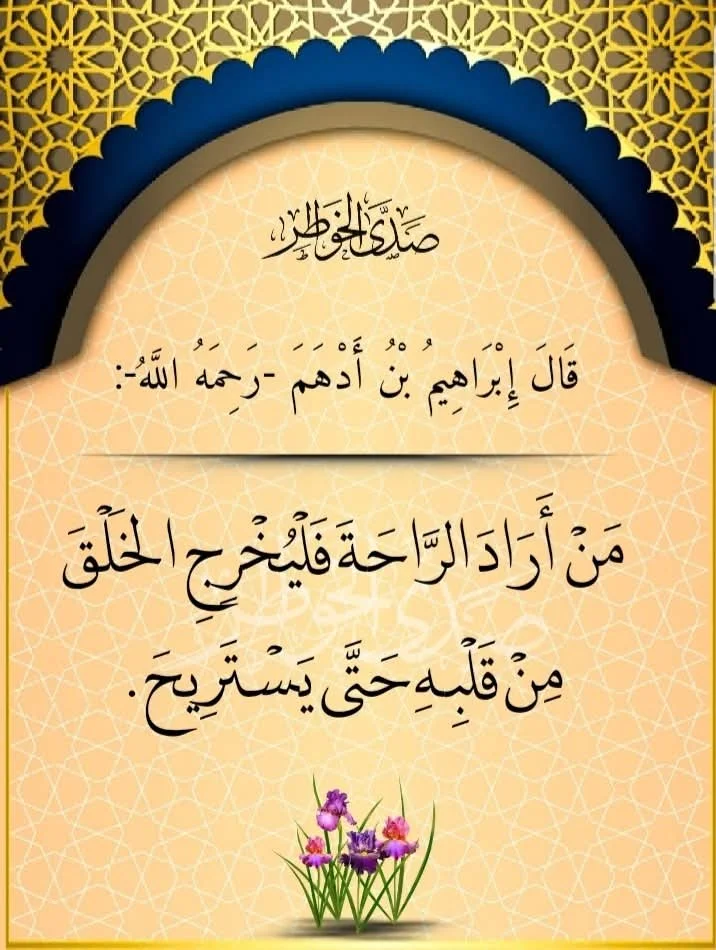 صَدَىَ الخَوَاطِرِ
قَالَ إِبْرَاهِيمُ بْنُ أَدْهَمَ -رَحِمَهُ اللَّهُ-:
مَنْ أَرَادَ الرَّاحَةَ فَلْيُخْرِجِ الخَلْقَ
مِنْ قَلْبِهِ حَتَّى يَسْتَرِيحَ.
صَدَىَ الخَوَاطِرِ